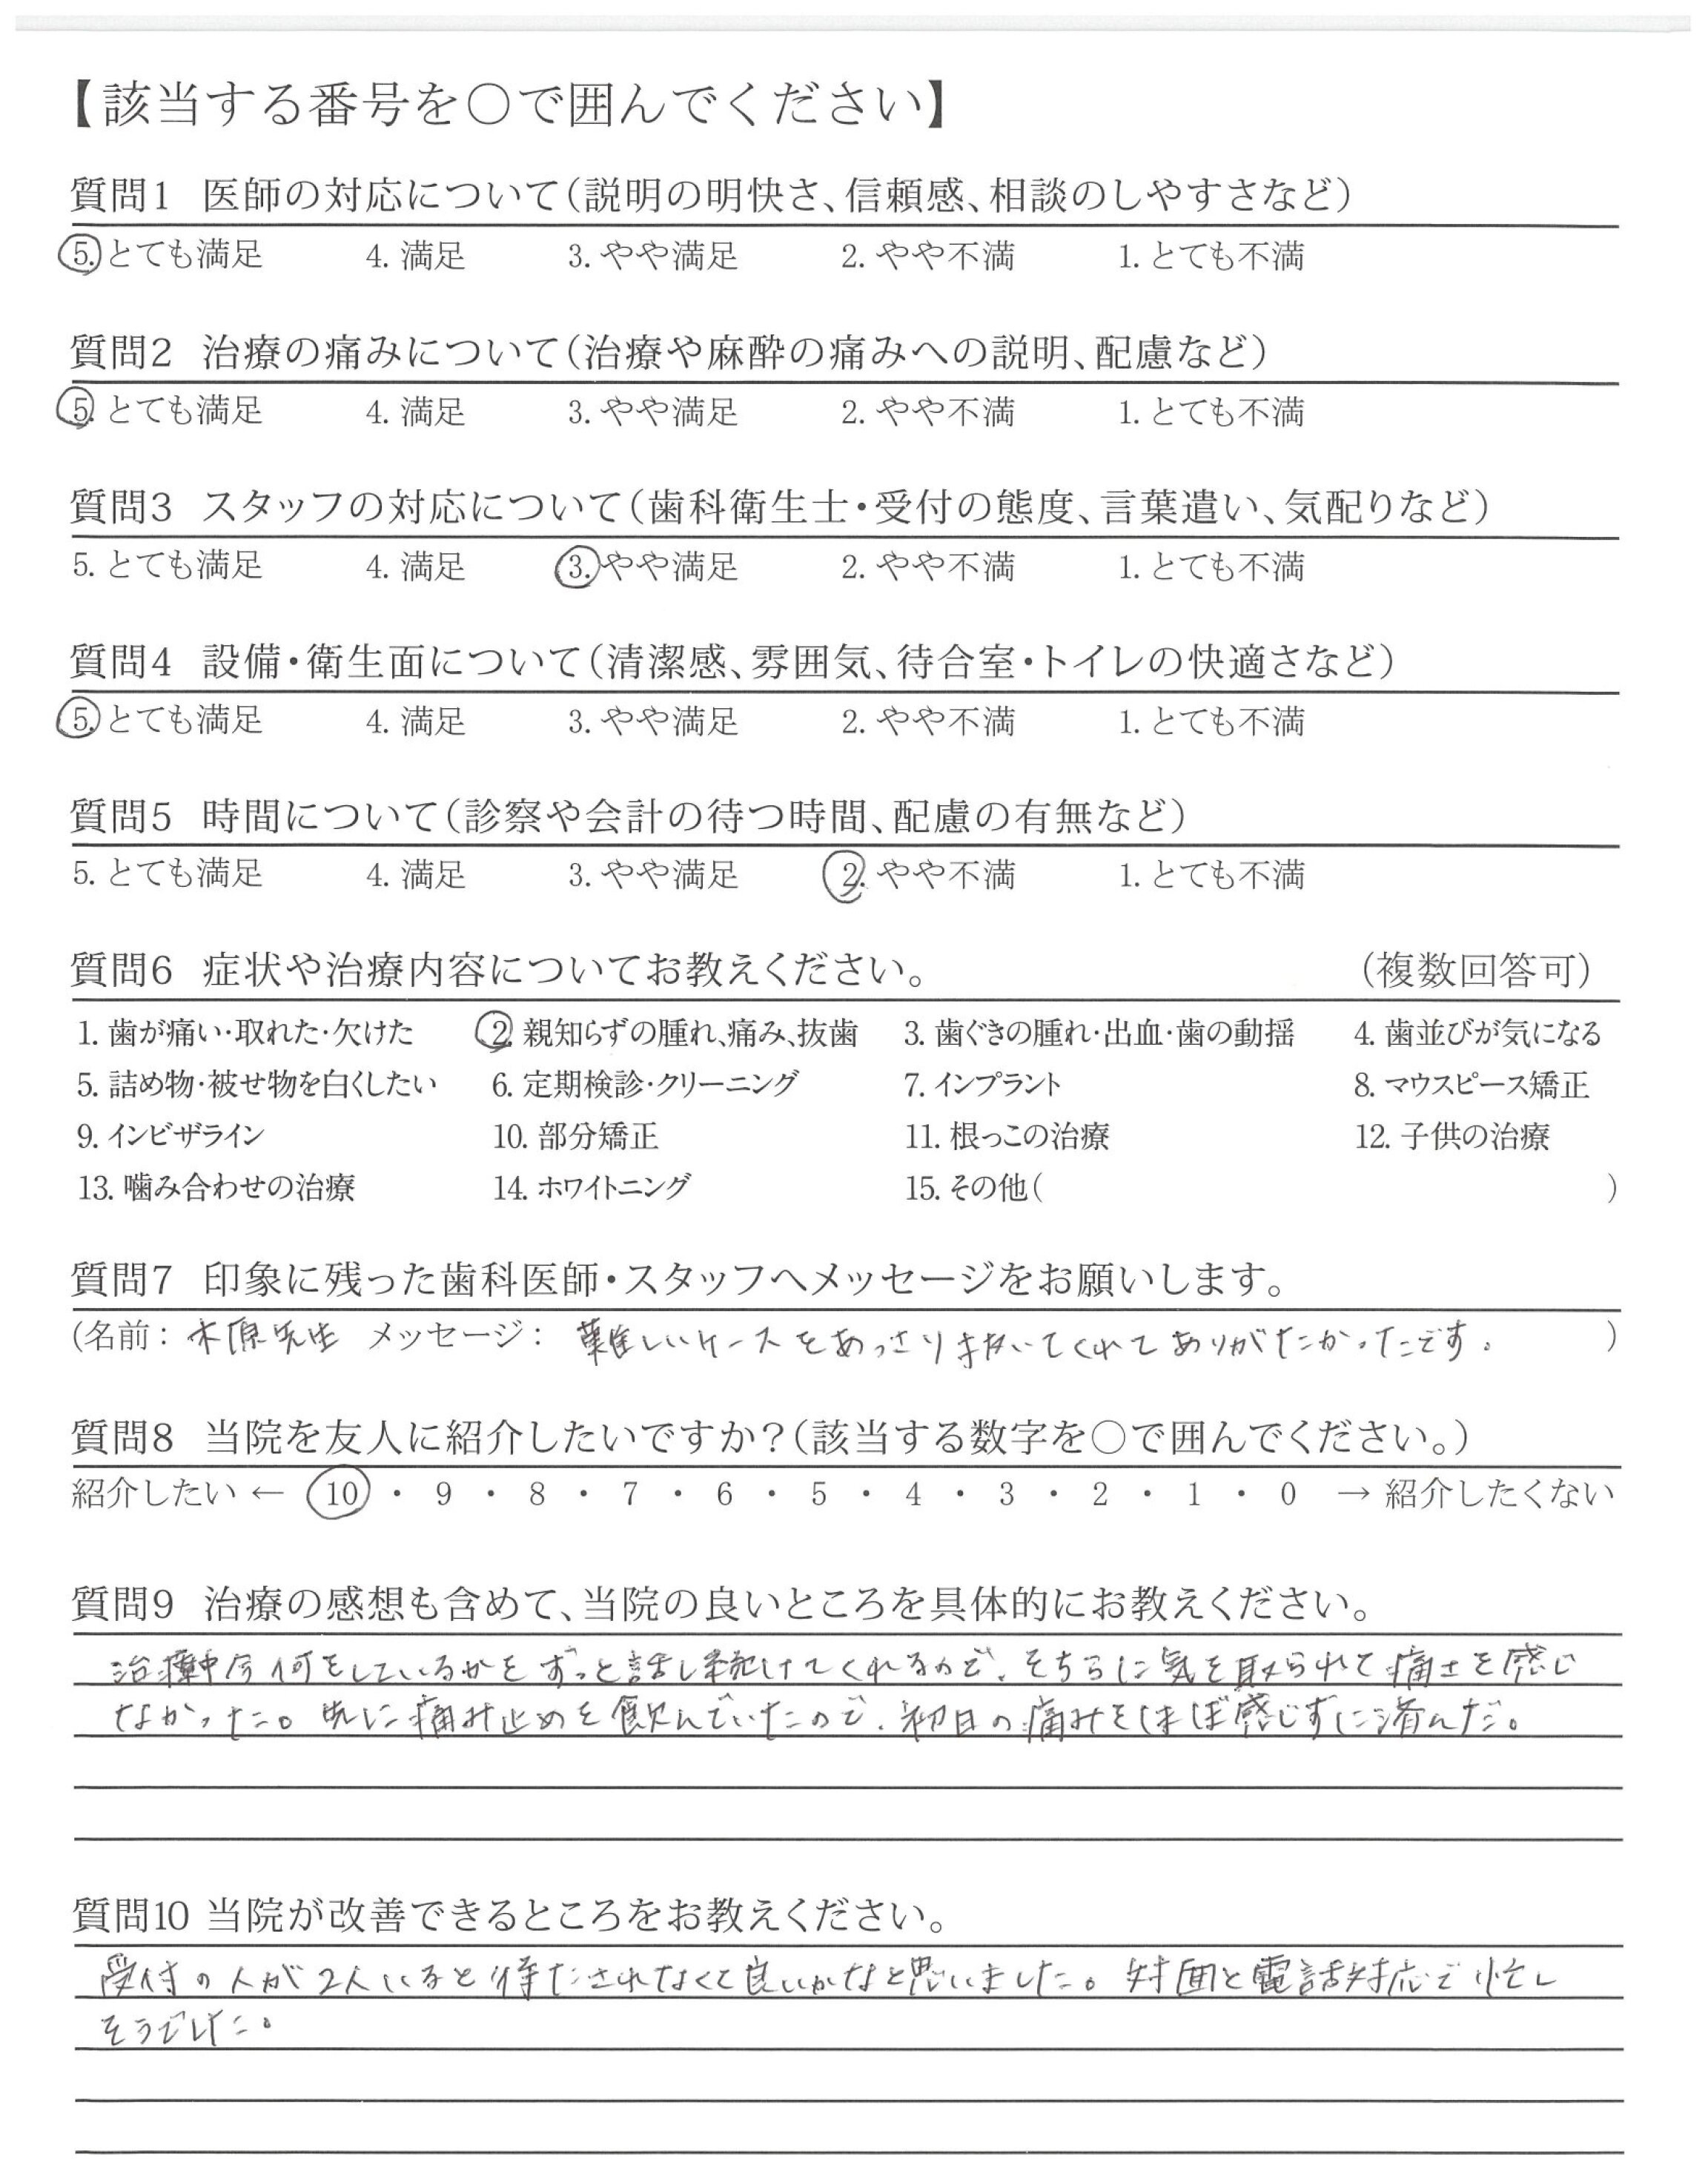 【該当する番号を〇で囲んでください】
質問1 医師の対応について（説明の明快さ、信頼感、相談のしやすさなど）
5. とても満足 4. 満足 3. やや満足 2. やや不満 1. とても不満
質問2 治療の痛みについて（治療や麻酔の痛みへの説明、配慮など）
5. とても満足 4. 満足 3. やや満足 2. やや不満 1. とても不満
質問3 スタッフの対応について（歯科衛生士・受付の態度、言葉遣い、気配りなど）
5. とても満足 4. 満足 3. やや満足 2. やや不満 1. とても不満
質問4 設備・衛生面について（清潔感、雰囲気、待合室・トイレの快適さなど）
5. とても満足 4. 満足 3. やや満足 2. やや不満 1. とても不満
質問5 時間について（診察や会計の待つ時間、配慮の有無など）
5. とても満足 4. 満足 3. やや満足 2. やや不満 1. とても不満
質問6 症状や治療内容についてお教えください。 （複数回答可）
1. 歯が痛い・取れた・欠けた 2. 親知らずの腫れ、痛み、抜歯 3. 歯ぐきの腫れ・出血・歯の動揺 4. 歯並びが気になる
5. 詰め物・被せ物を白くしたい 6. 定期検診・クリーニング 7. インプラント 8. マウスピース矯正
9. インビザライン 10. 部分矯正 11. 根っこの治療 12. 子供の治療
13. 噛み合わせの治療 14. ホワイトニング 15. その他（ ）
質問7 印象に残った歯科医師・スタッフへメッセージをお願いします。
（名前： 木原先生 メッセージ： 難しいケースをあっさり抜いてくれてありがたかったです。 ）
質問8 当院を友人に紹介したいですか？（該当する数字を〇で囲んでください。）
紹介したい ← 10 ・ 9 ・ 8 ・ 7 ・ 6 ・ 5 ・ 4 ・ 3 ・ 2 ・ 1 ・ 0 → 紹介したくない
質問9 治療の感想も含めて、当院の良いところを具体的にお教えください。
治療中今何をしているかをずっと話し続けてくれるので、そちらに気を取られて痛さを感じ
なかった。先に痛み止めを飲んでいたので、初日の痛みをほぼ感じずに済んだ。
質問10 当院が改善できるところをお教えください。
受付の人が2人いると待たされなくて良いかなと思いました。対面と電話対応で忙し
そうでした。